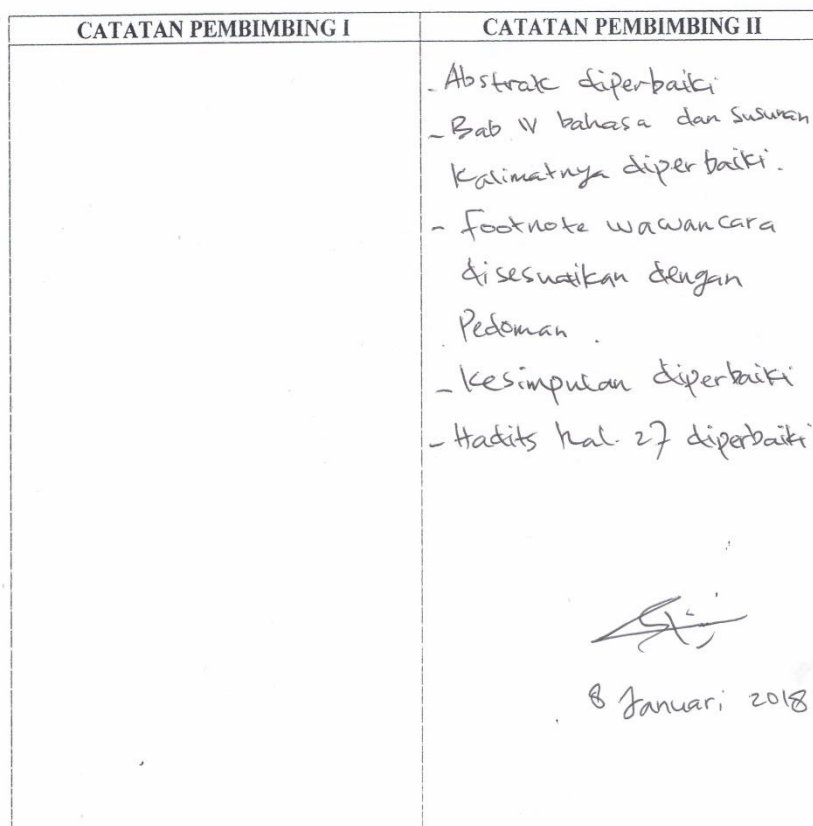 CATATAN PEMBIMBING I
CATATAN PEMBIMBING II
- Abstrak diperbaiki
- Bab IV bahasa dan Susunan
Kalimatnya diperbaiki.
- footnote wawancara
disesuaikan dengan
Pedoman.
- Kesimpulan diperbaiki
- Hadits hal. 27 diperbaiki
8 Januari 2018